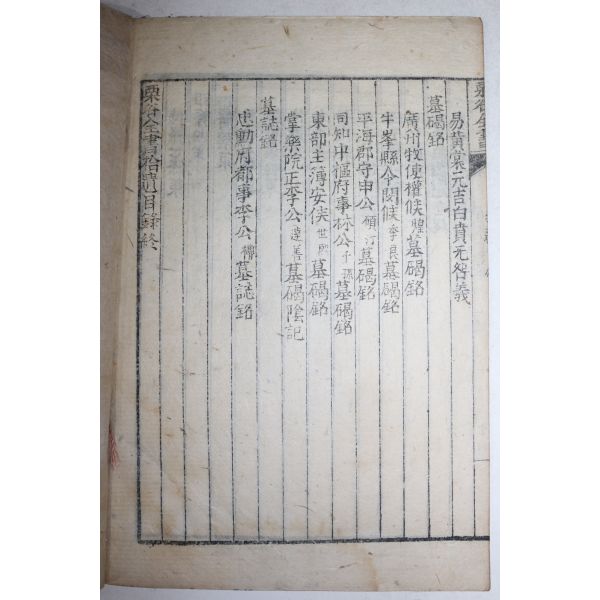 栗谷全書
易黃裳元吉白賁无咎義
墓碣銘
廣州牧使權侯墓碣銘
牛峯縣令閔侯墓碣銘
平海郡守申公墓碣銘
同知中樞府事林公千孫墓碣銘
東部主簿安侯世熙墓碣銘
掌樂院正李公達善墓碣陰記
墓誌銘
忠勳府都事李公墓誌銘
栗谷全書拾遺目錄終